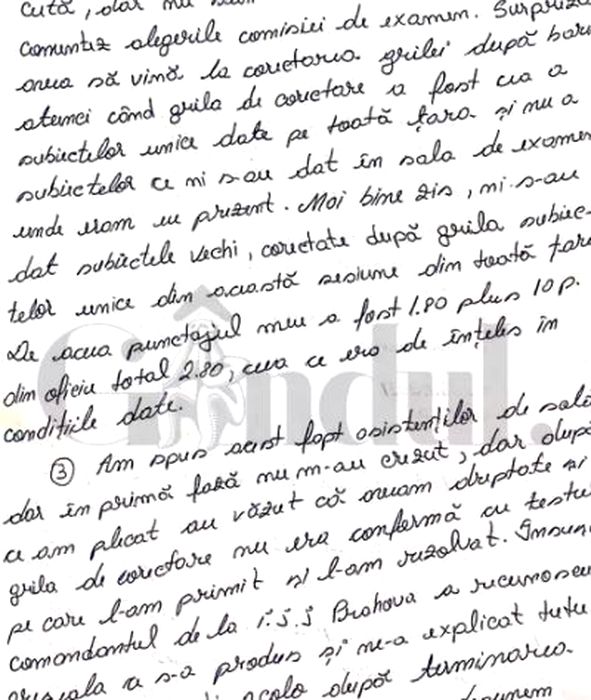 cută, dar nu
comentez alegerile comisiei de examen. Surpriza
avea să vină la corectarea grilei după bare
atunci când grila de corectare a fost cea a
subiectelor unice date pe toată țara și nu a
subiectelor ce ni s-au dat în sala de examen
unde eram eu prezent. Mai bine zis, ni s-au
dat subiectele vechi, corectate după grila subiec-
telor unice din această sesiune din toată țara
De aceea punctajul meu a fost 1.80 plus 10 p.
din oficiu total 2.80, ceea ce era de înțeles în
condițiile date.
Gândul.
③ Am spus acest fapt asistenților de sală
dar în primă fază nu m-au crezut, dar după
ce am plecat au văzut că aveam dreptate și
grila de corectare nu era conformă cu testul
pe care l-am primit și l-am rezolvat. Însuși
comandantul de la i.s.j Prahova a recunoscu
a s-a produs și ne-a explicat tutu
acolo după terminarea.